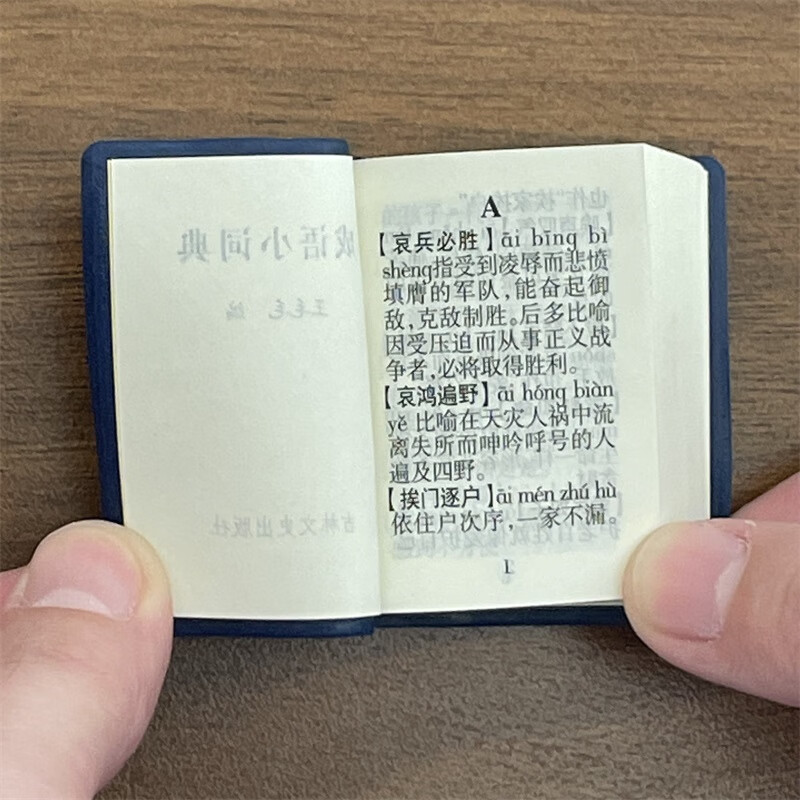 成语小词典
王毛毛 编
吉林文史出版社
A
【哀兵必胜】āi bīng bì
shèng指受到凌辱而悲愤
填膺的军队,能奋起御
敌,克敌制胜。后多比喻
因受压迫而从事正义战
争者,必将取得胜利。
【哀鸿遍野】āi hóng biàn
yě 比喻在天灾人祸中流
离失所而呻吟呼号的人
遍及四野。
【挨门逐户】āi mén zhú hù
依住户次序,一家不漏。
1